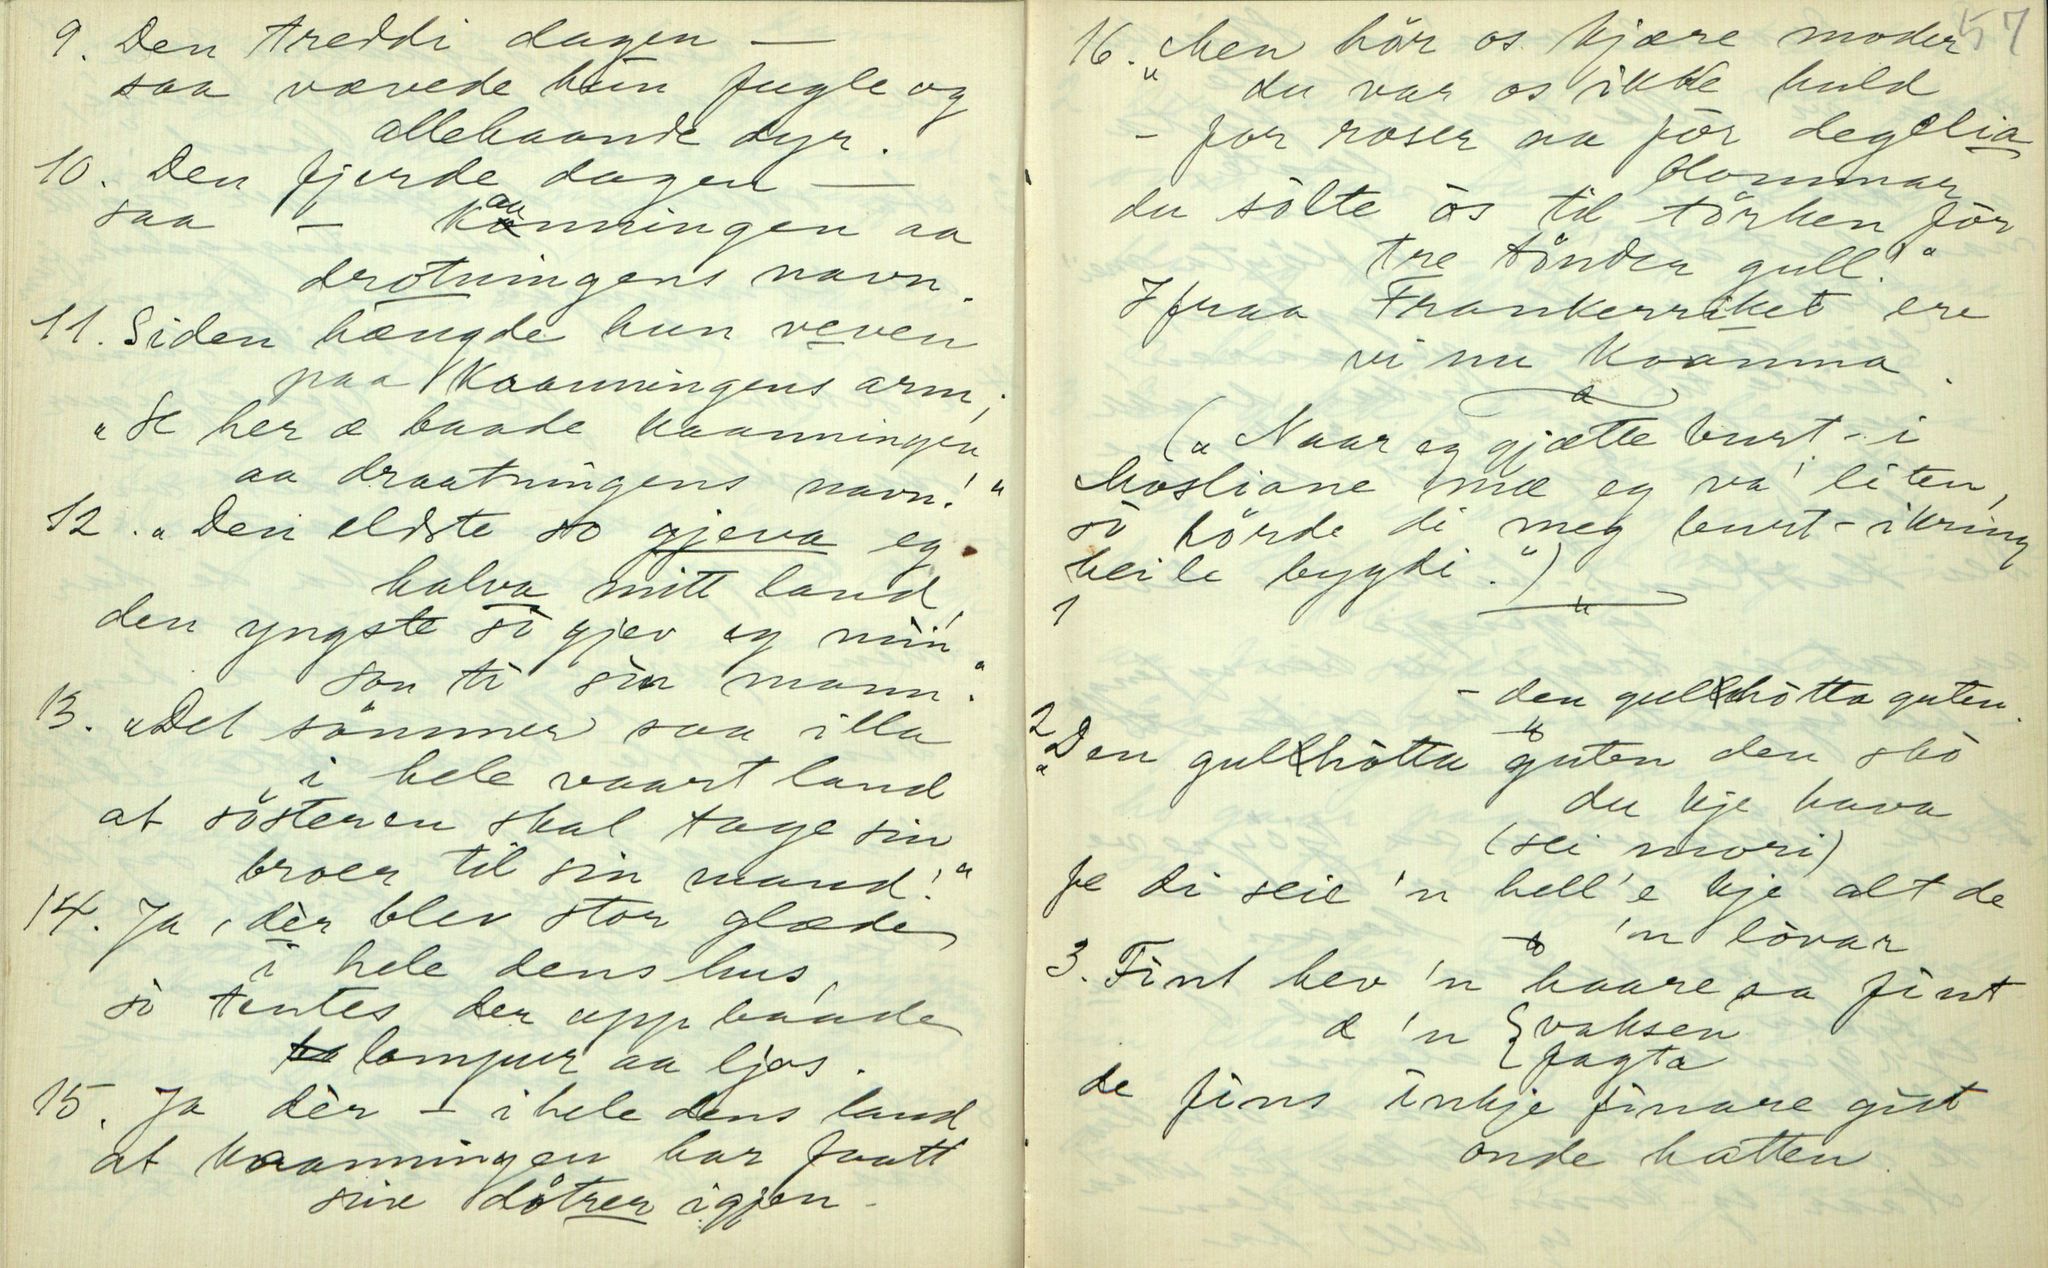 9. Den treddi dagen —
saa vævede hun fugle og
allehaande dyr.
10. Den fjerde dagen —
saa — Kaanningen aa
drotningens navn.
11. Siden hængde hun veven
paa Kaanningens arm;
"Se her æ baade kaanningen
aa draatningens navn!"
12. "Den eldste so gjeva eg
halva mitt land,
den yngste sò gjev eg min
son ti sin mann."
13. "Det sömmer saa illa
i hele vaart land
at sösteren skal tage sin
broer til sin mand!"
14. Ja, dèr blev stor glæde
i hele dens hus,
sò tentes der upp baade
lampur aa ljos.
15. Ja dèr — i hele dens land
at kaanningen har faatt
sine döttrer igjen —
57
16. "Men hör os kjære moder
du var os ikke huld
— for roser aa för deg lia
blommar
du sölte òs til törken för
tre tönder gull!"
Ifraa Frankerriket ere
vi nu koamma.
("Naar eg gjætte burt-i
Mosliane mæ eg va' liten,
sò hörde di meg burt-ikring
heile bygdi.")
1
— den gullhòtta guten.
2 "Den gullhòtta guten den skò
du kje hava
(sei mori)
fe di seie 'n hell'e kje alt de
'n lòvar
3. Fint hev 'n haare aa fint
æ 'n { vaksen
{ fagta
de fins inkje finare gut
onde hatten.